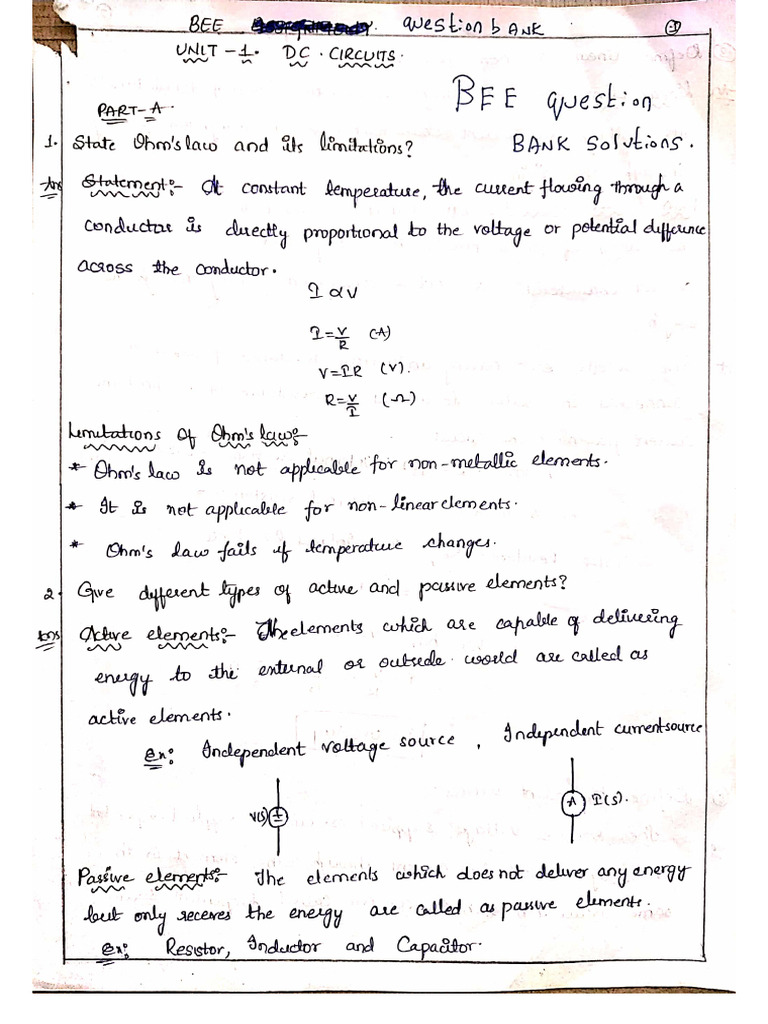 BEE question bANK
UNIT-1. DC. CIRCUITS.
BEE question
BANK Solutions.
PART-A.
1. State Ohm's law and its limitations?
Ans Statement:- At constant temperature, the current flowing through a
conductor is directly proportional to the voltage or potential difference
across the conductor.
I α V
I = V/R (A)
V = IR (V).
R = V/I (Ω)
Limitations of Ohm's law:-
* Ohm's law is not applicable for non-metallic elements.
* It is not applicable for non-linear elements.
* Ohm's law fails if temperature changes.
2. Give different types of active and passive elements?
Ans Active elements:- The elements which are capable of delivering
energy to the external or outside world are called as
active elements.
Ex: Independent voltage source, Independent current source
V(s) I(s).
Passive elements:- The elements which does not deliver any energy
but only receves the energy are called as passive elements.
Ex: Resistor, Inductor and Capacitor.